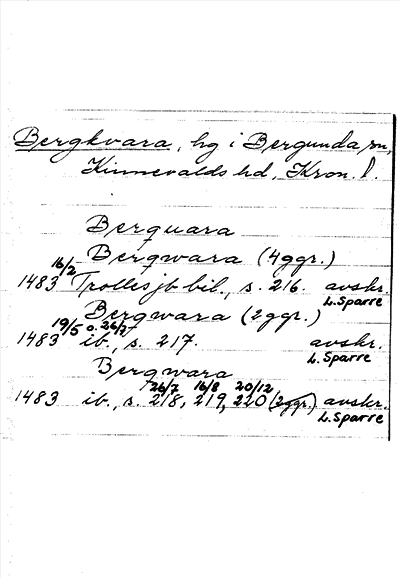 Bergkvara, hg i Bergunda sn,
Kinnevalds hd, Kron. l.
Berquara
Bergwara (4ggr.)
1483 16/2 Trolles jb bil., s. 216. avskr.
L. Sparre
Bergwara (2ggr.)
19/5 o. 26/7
1483 ib., s. 217. avskr.
L. Sparre
Bergwara
26/7 16/8 20/12
1483 ib., s. 218, 219, 220 (2ggr.) avskr.
L. Sparre